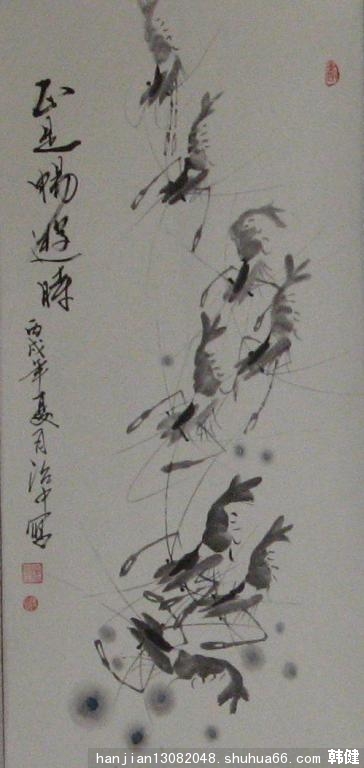 正是暢遊時
丙戌年夏月治中寫
hanjian13082048.shuhua66.com 韩健